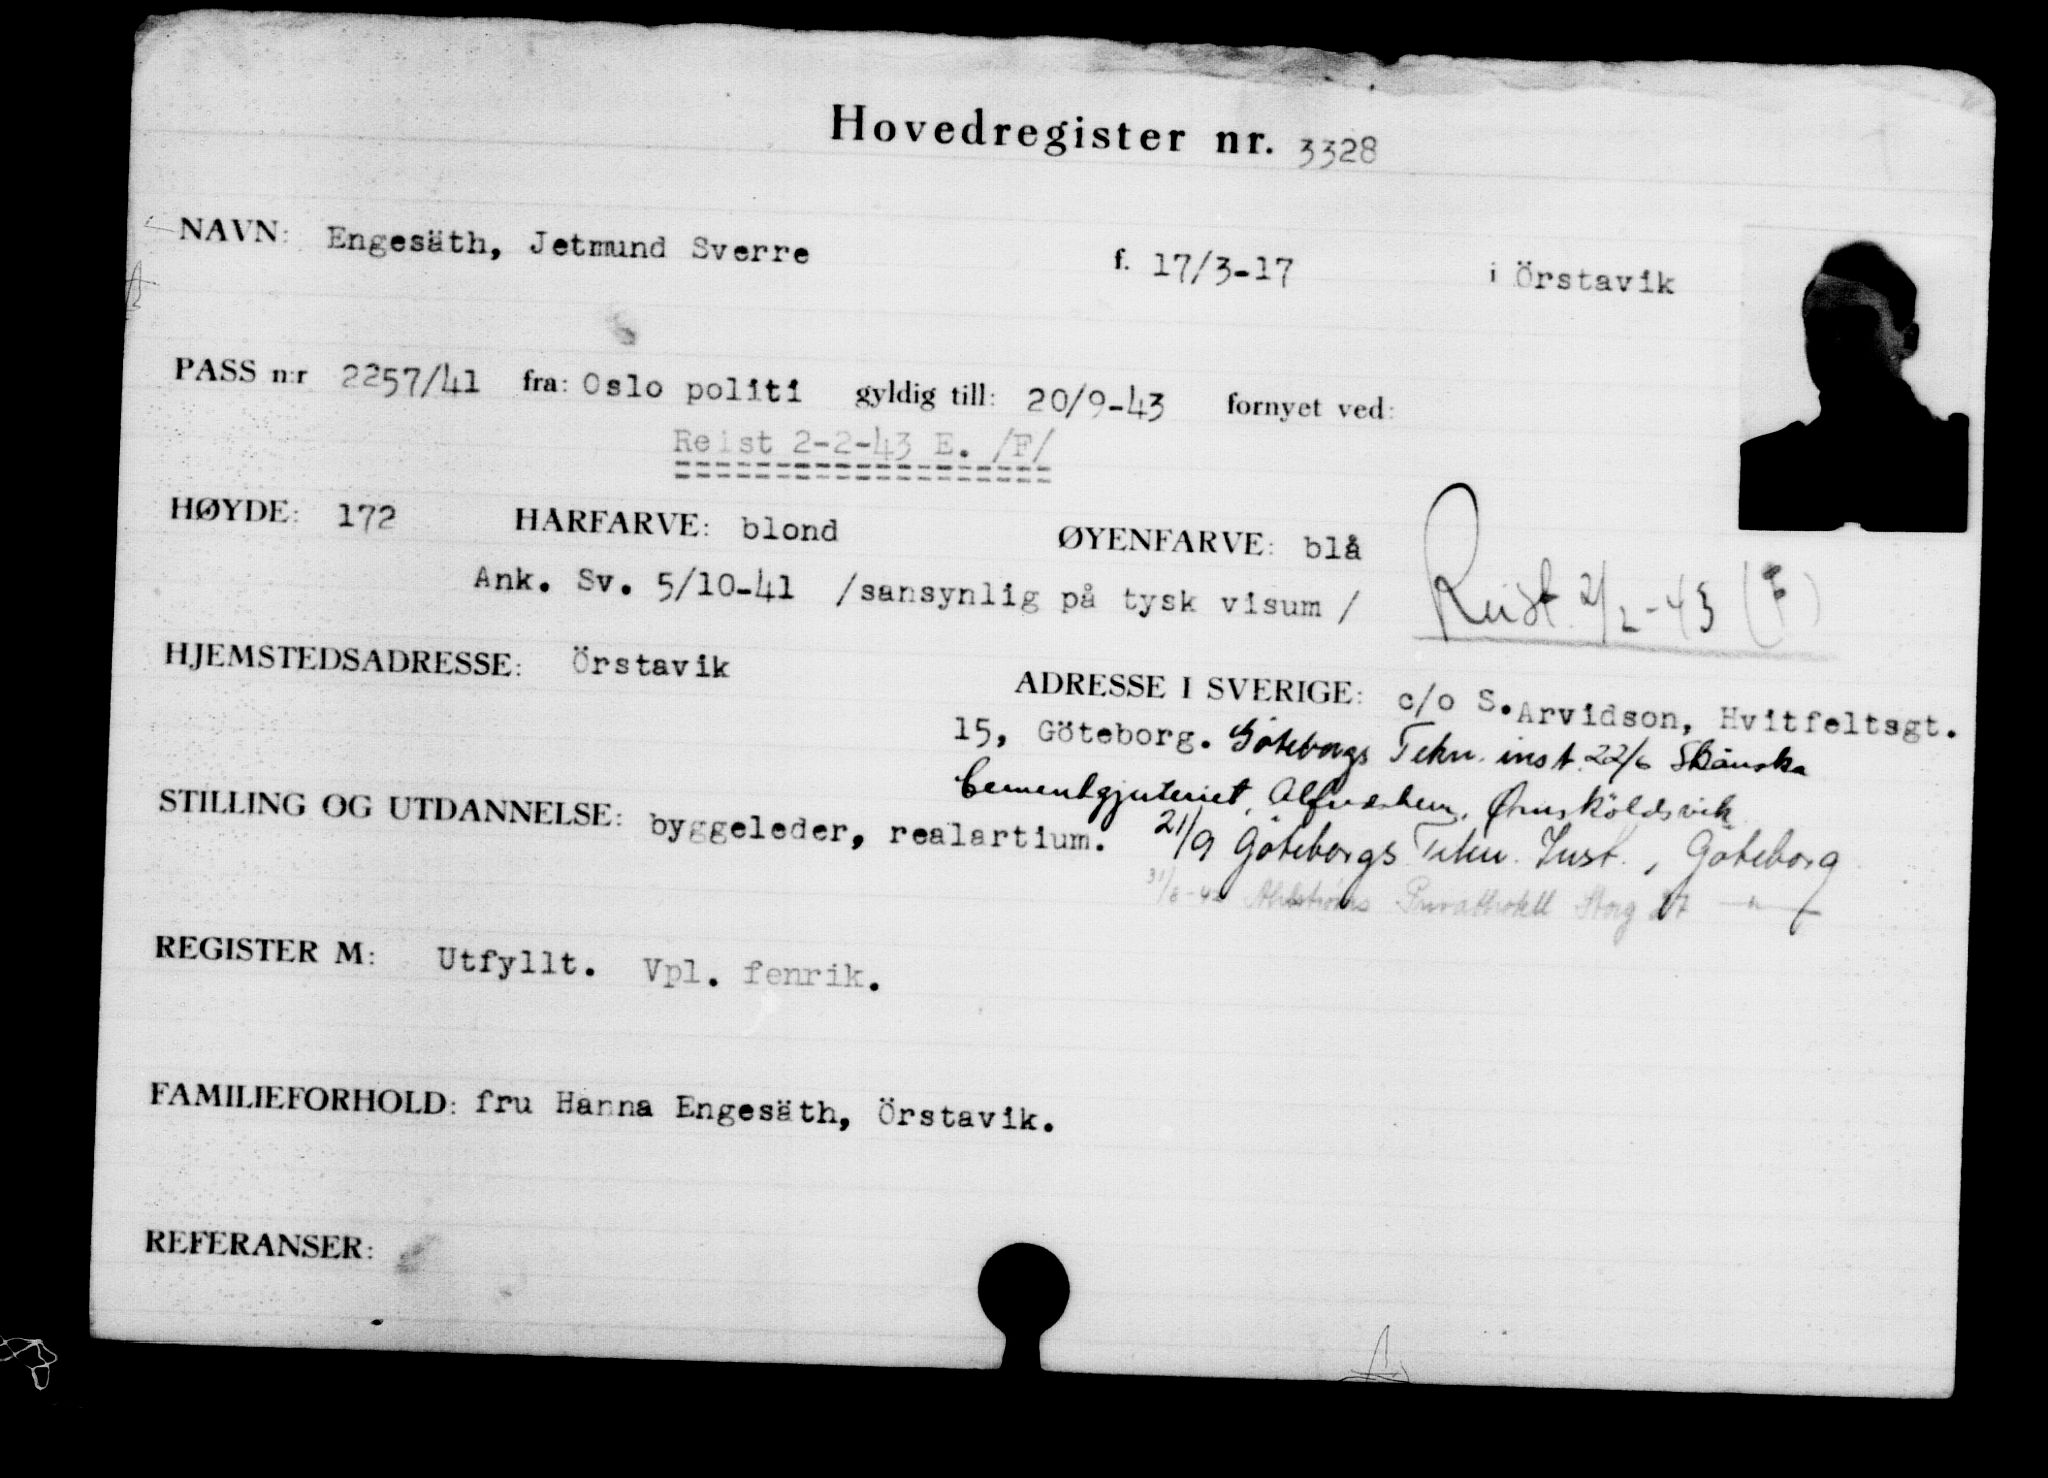 Hovedregister nr. 3328
NAVN: Engesäth, Jetmund Sverre f. 17/3-17 i Örstavik
PASS n:r 2257/41 fra: Oslo politi gyldig till: 20/9-43 fornyet ved:
Reist 2-2-43 E. /F/
HØYDE: 172 HÅRFARVE: blond ØYENFARVE: blå
Ank. Sv. 5/10-41 /sansynlig på tysk visum / Reist 2/2-43 (F)
HJEMSTEDSADRESSE: Örstavik
ADRESSE I SVERIGE: c/o S. Arvidson, Hvitfeltsgt.
15, Göteborg. Göteborgs Tekn. inst. 22/6 Skånska
Cementgjuteriet, Ørnsköldsvik
STILLING OG UTDANNELSE: byggeleder, realartium.
21/9 Göteborgs Tekn. Inst., Göteborg
Privathotell
REGISTER M: Utfyllt. Vpl. fenrik.
FAMILIEFORHOLD: fru Hanna Engesäth, Örstavik.
REFERANSER: